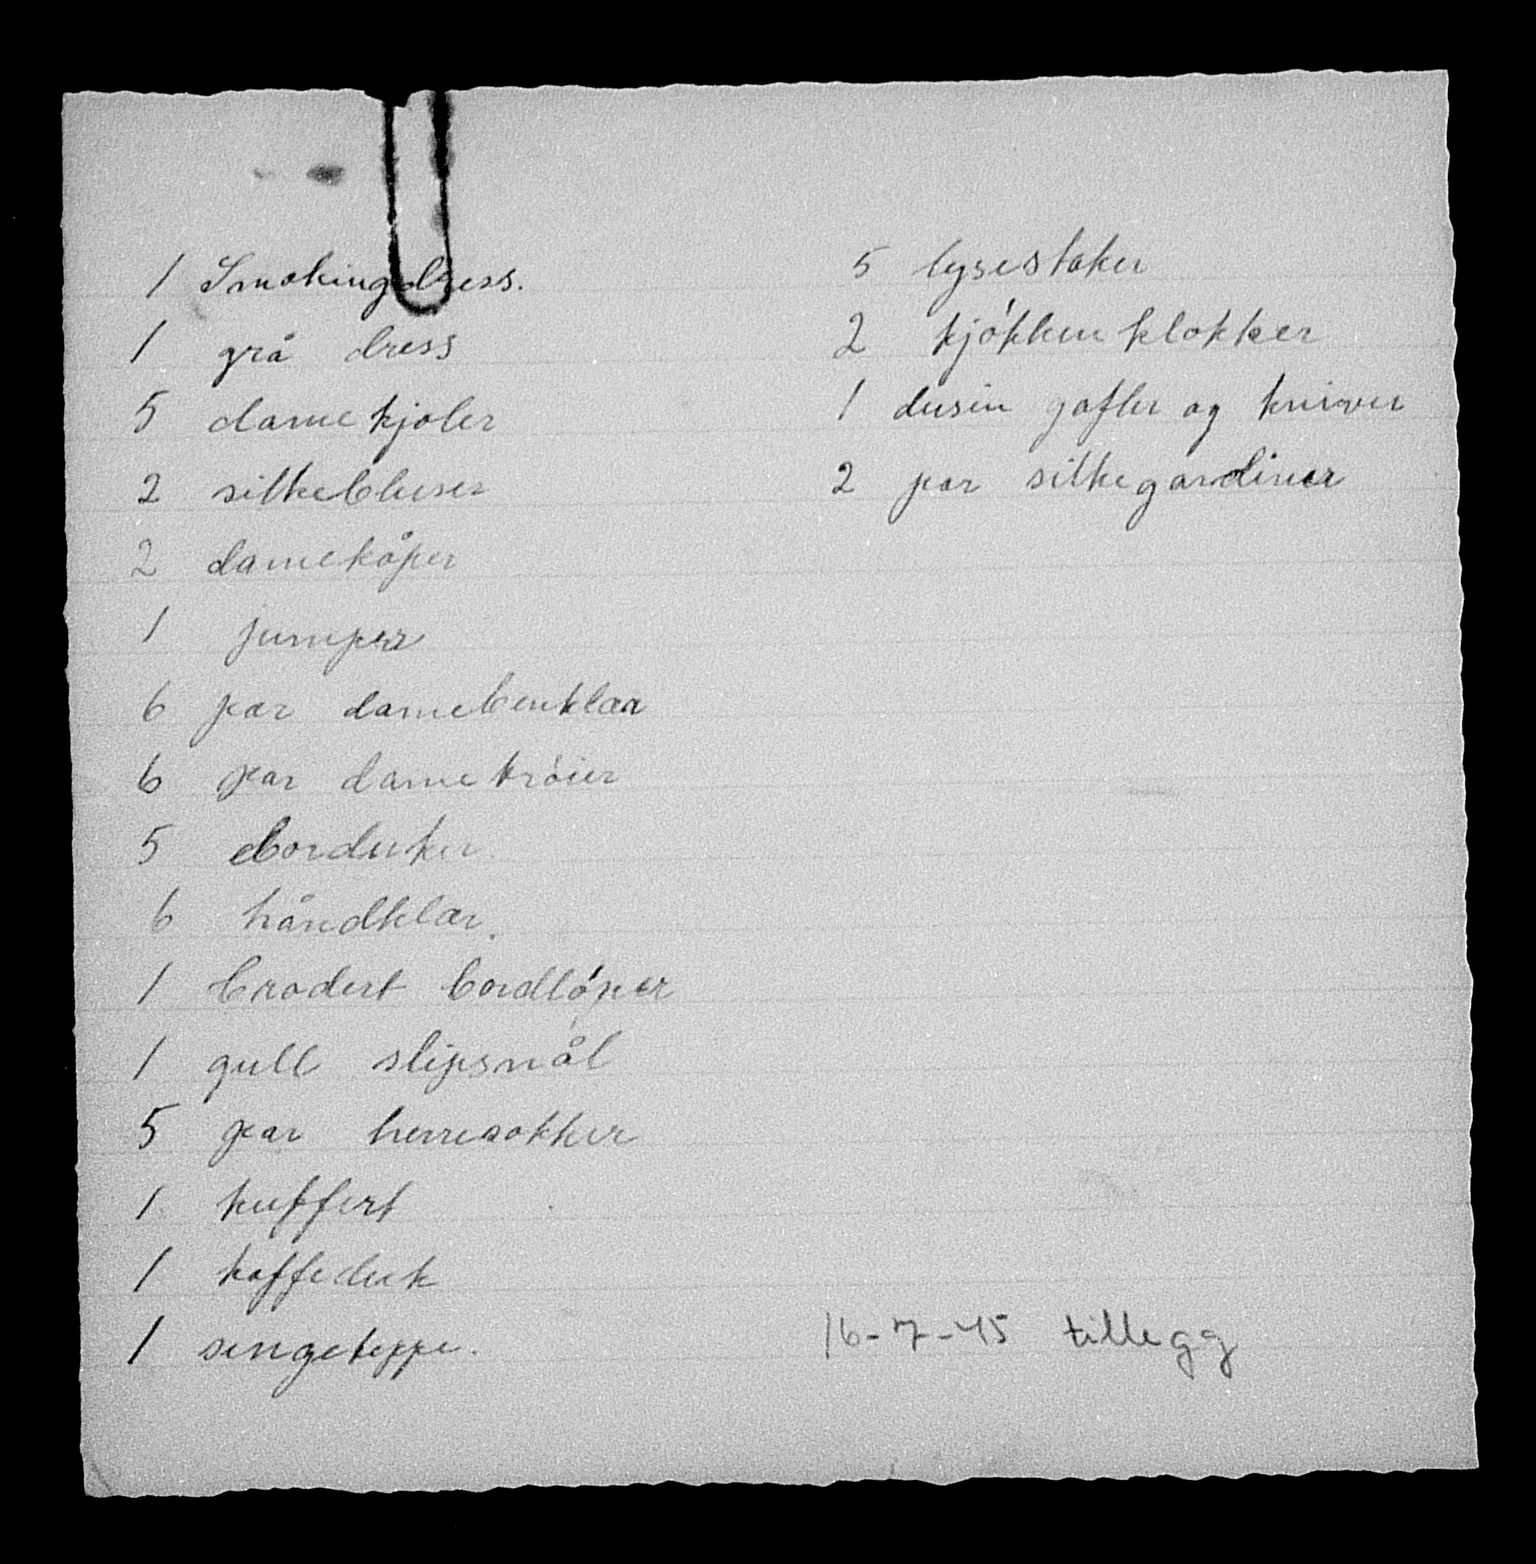 1 Smokingdress.
1 grå dress
5 damekjoler
2 silkebluser
2 damekåper
1 jumper
6 par damebenklær
6 par dametróier
5 borduker.
6 håndklær.
1 brodert bordlóper
1 gull slipsnål
5 par herresokker
1. kuffert
1 kaffeduk
1 sengeteppe.
5 lysestaker
2 kjókkenklokker
1 dusin gafler og kniver
2 par silkegardiner
16-7-45 tillegg